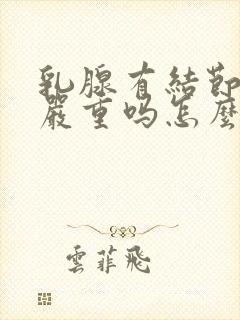 乳腺有結節
嚴重吗怎麼
雲菲飛